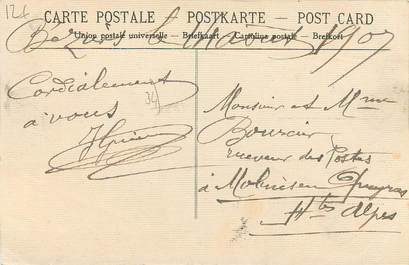 126
CARTE POSTALE - POSTKARTE - POST CARD
Union postale universelle - Briefkaart - Cartolina postale - Brefkort
le août 1907
Cordialement
à vous
34
Monsieur et Mme
Bourcier
receveur des Postes
à Molines en Queyras
Htes Alpes